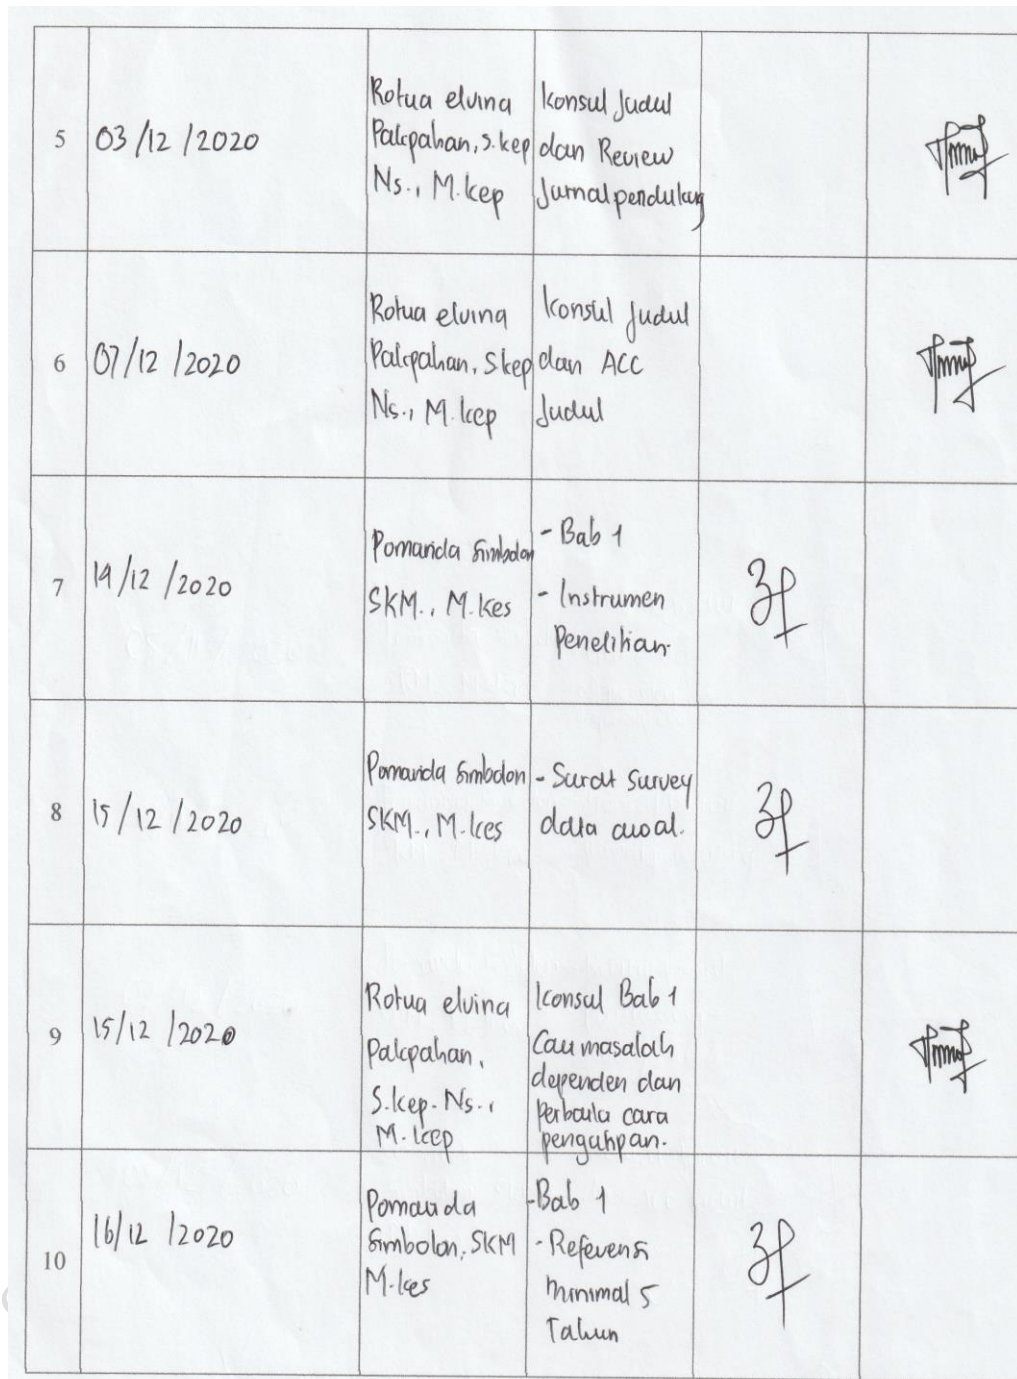 5
03/12/2020
Rotua elvina
Pakpahan, S.kep
Ns., M.kep
Konsul Judul
dan Review
Jurnal pendukung
6
07/12/2020
Rotua elvina
Pakpahan, Skep
Ns., M.kep
Konsul Judul
dan ACC
Judul
7
14/12/2020
Pomarida Simbolon
SKM., M.Kes
- Bab 1
- Instrumen
Penelitian.
8
15/12/2020
Pomarida Simbolon
SKM., M.kes
- Surat Survey
data awal.
9
15/12/2020
Rotua elvina
Pakpahan,
S.kep. Ns.,
M.kep
Konsul Bab 1
Cari masalah
dependen dan
Perbaiki cara
pengutipan.
10
16/12/2020
Pomarida
Simbolon, SKM
M.kes
- Bab 1
- Referensi
minimal 5
Tahun